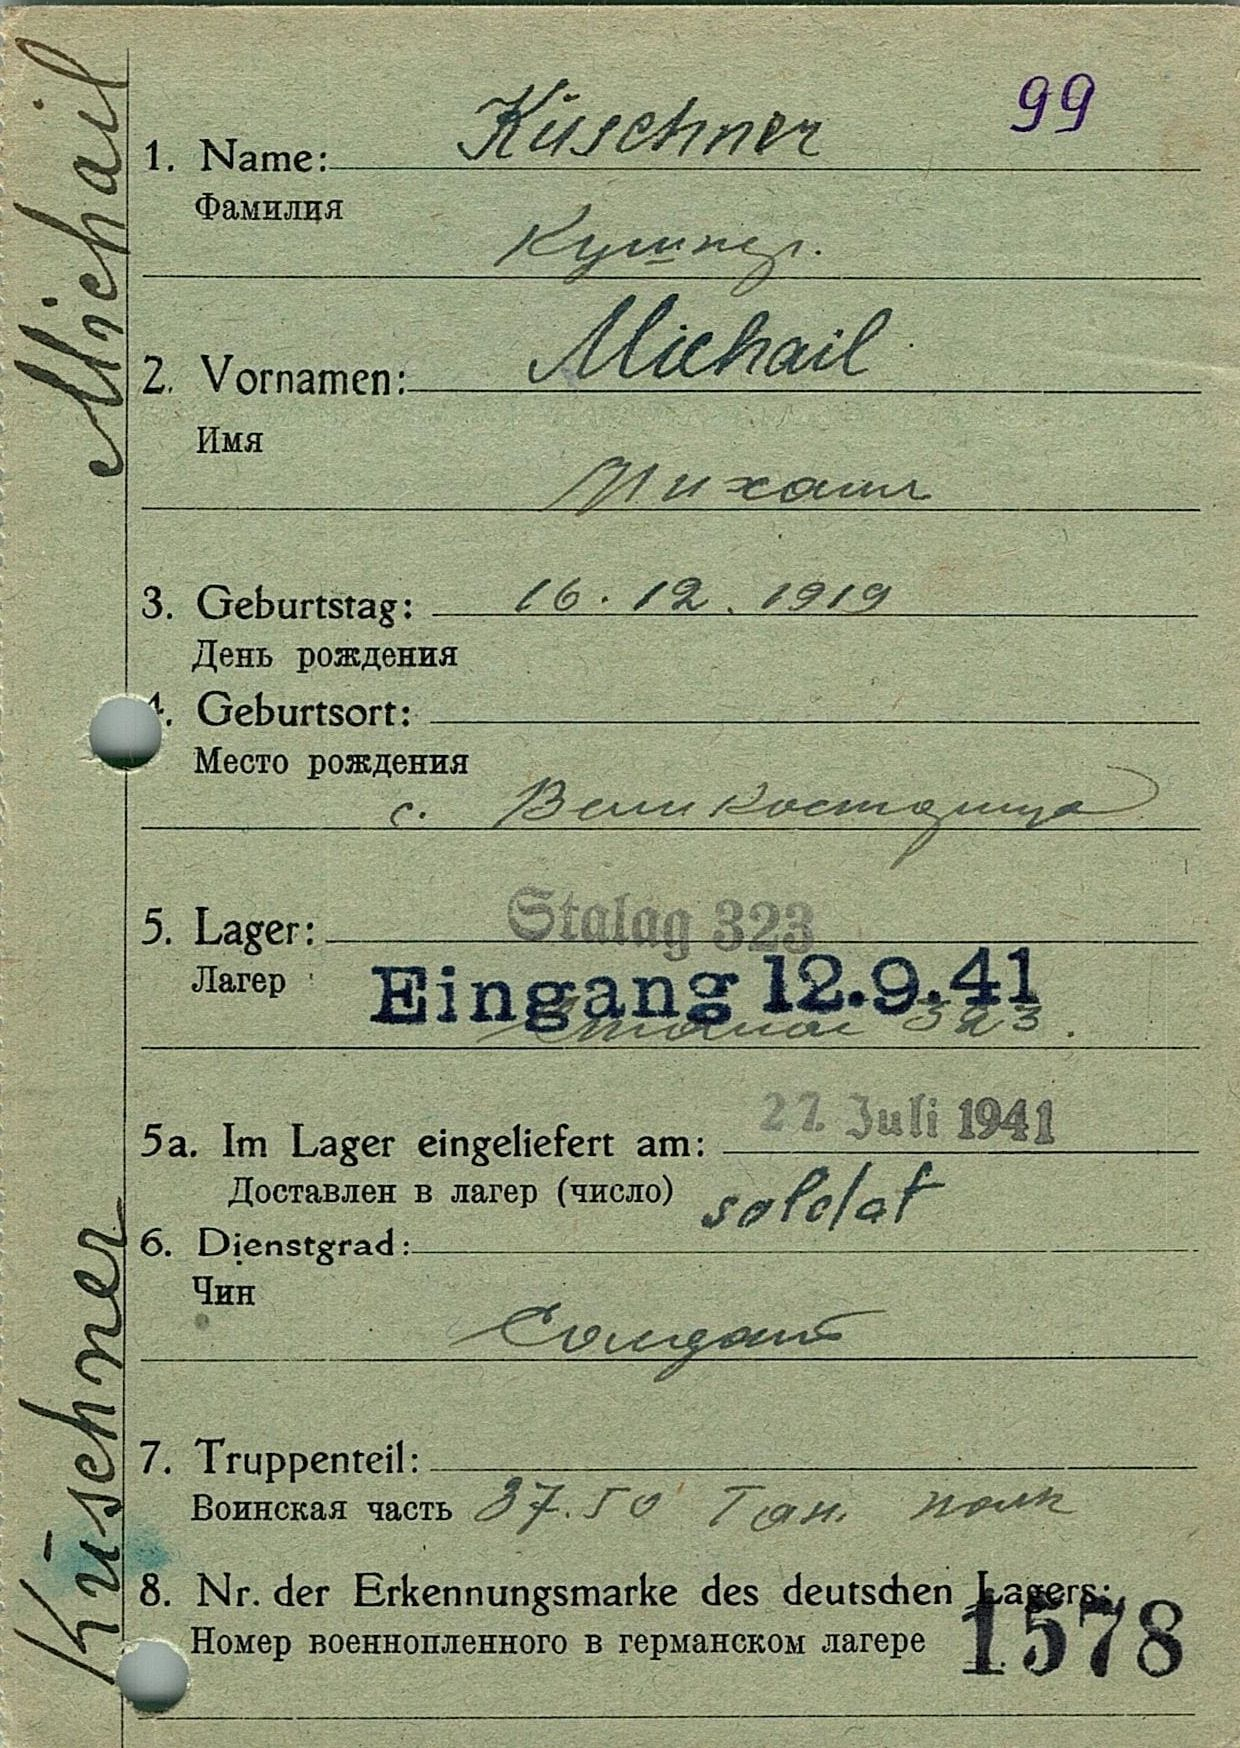 Michail
Küschner
99
1. Name: Küschner
Фамилия
Кушнер.
2. Vornamen: Michail
Имя
Михаил
3. Geburtstag: 16.12.1919
День рождения
4. Geburtsort:
Место рождения
с.
5. Lager: Stalag 323
Лагер Eingang 12.9.41
Сталаг 323.
5a. Im Lager eingeliefert am: 27. Juli 1941
Доставлен в лагер (число)
6. Dienstgrad: soldat
Чин
Солдат
7. Truppenteil:
Воинская часть 37.50 Тан. полк
8. Nr. der Erkennungsmarke des deutschen Lagers:
Номер военнопленного в германском лагере 1578